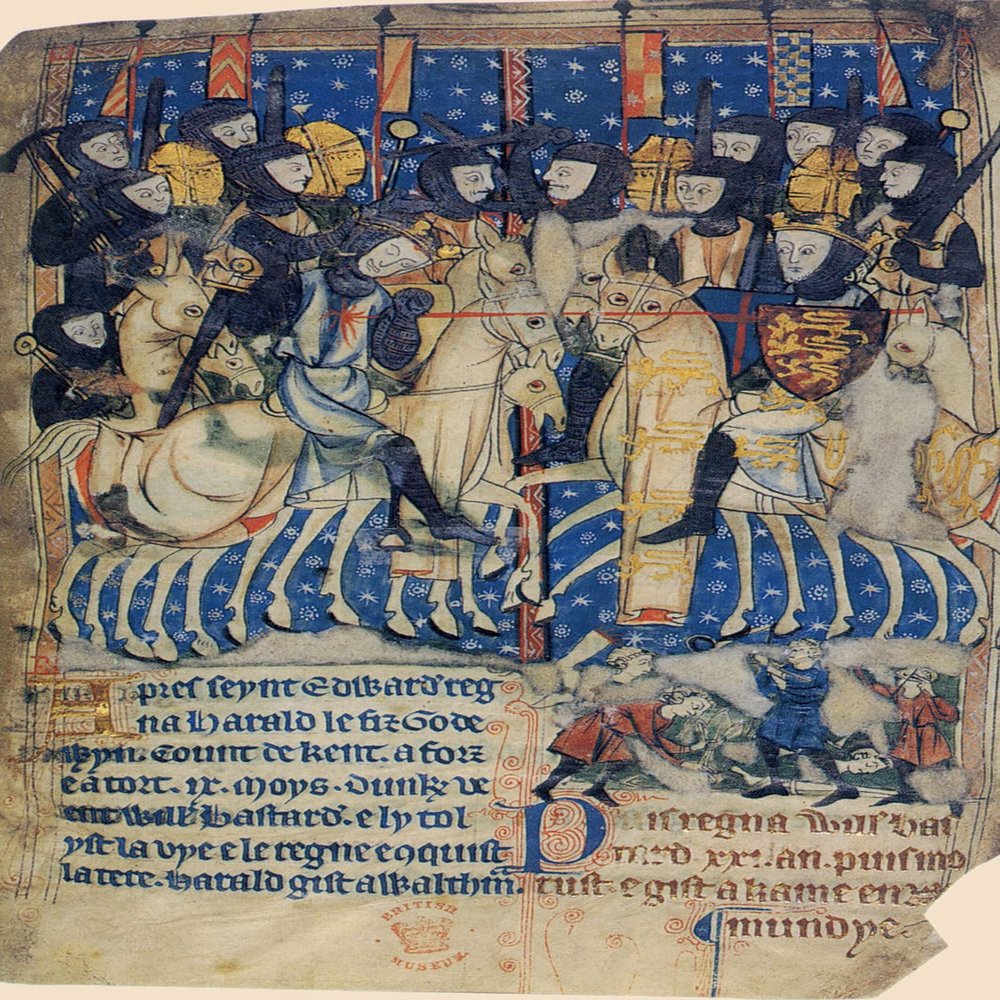 Apres seynt Edward reg
na Harald le fiz Gode
wyn. Count de kent. a forz
e a tort. ix. moys. Dunkz ve
ent will bastard. e ly tol
yst la vye e le regne enquist
la tere. Harald gist a Waltham.
Puis regna Will bas
tard xxi. an. puis mo
rust. e gist a kame en
mundye.
BRITISH
MUSEUM